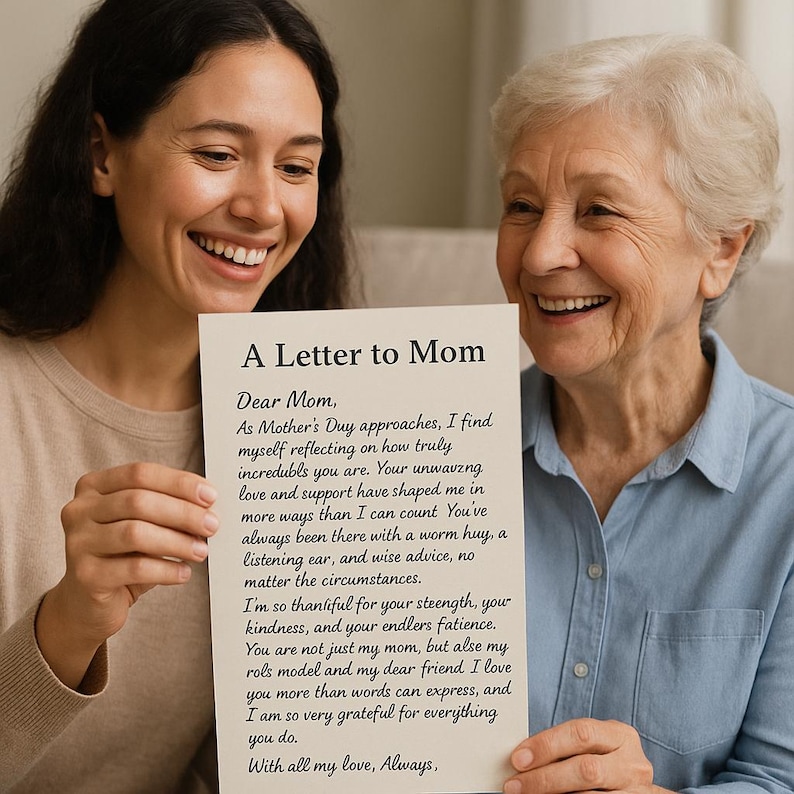 A Letter to Mom
Dear Mom,
As Mother's Duy approaches, I find
myself reflecting on how truly
incredubls you are. Your unwavzng
love and support have shaped me in
more ways than I can count You've
always been there with a worm huy, a
listening ear, and wise advice, no
matter the circumstances.
I'm so thanfiful for your steength, your
kindness, and your endlers fatience.
You are not just my mom, but alse my
rols model and my dear friend. I love
you more than words can express, and
I am so very grateful for everything
you do.
With all my love, Always,